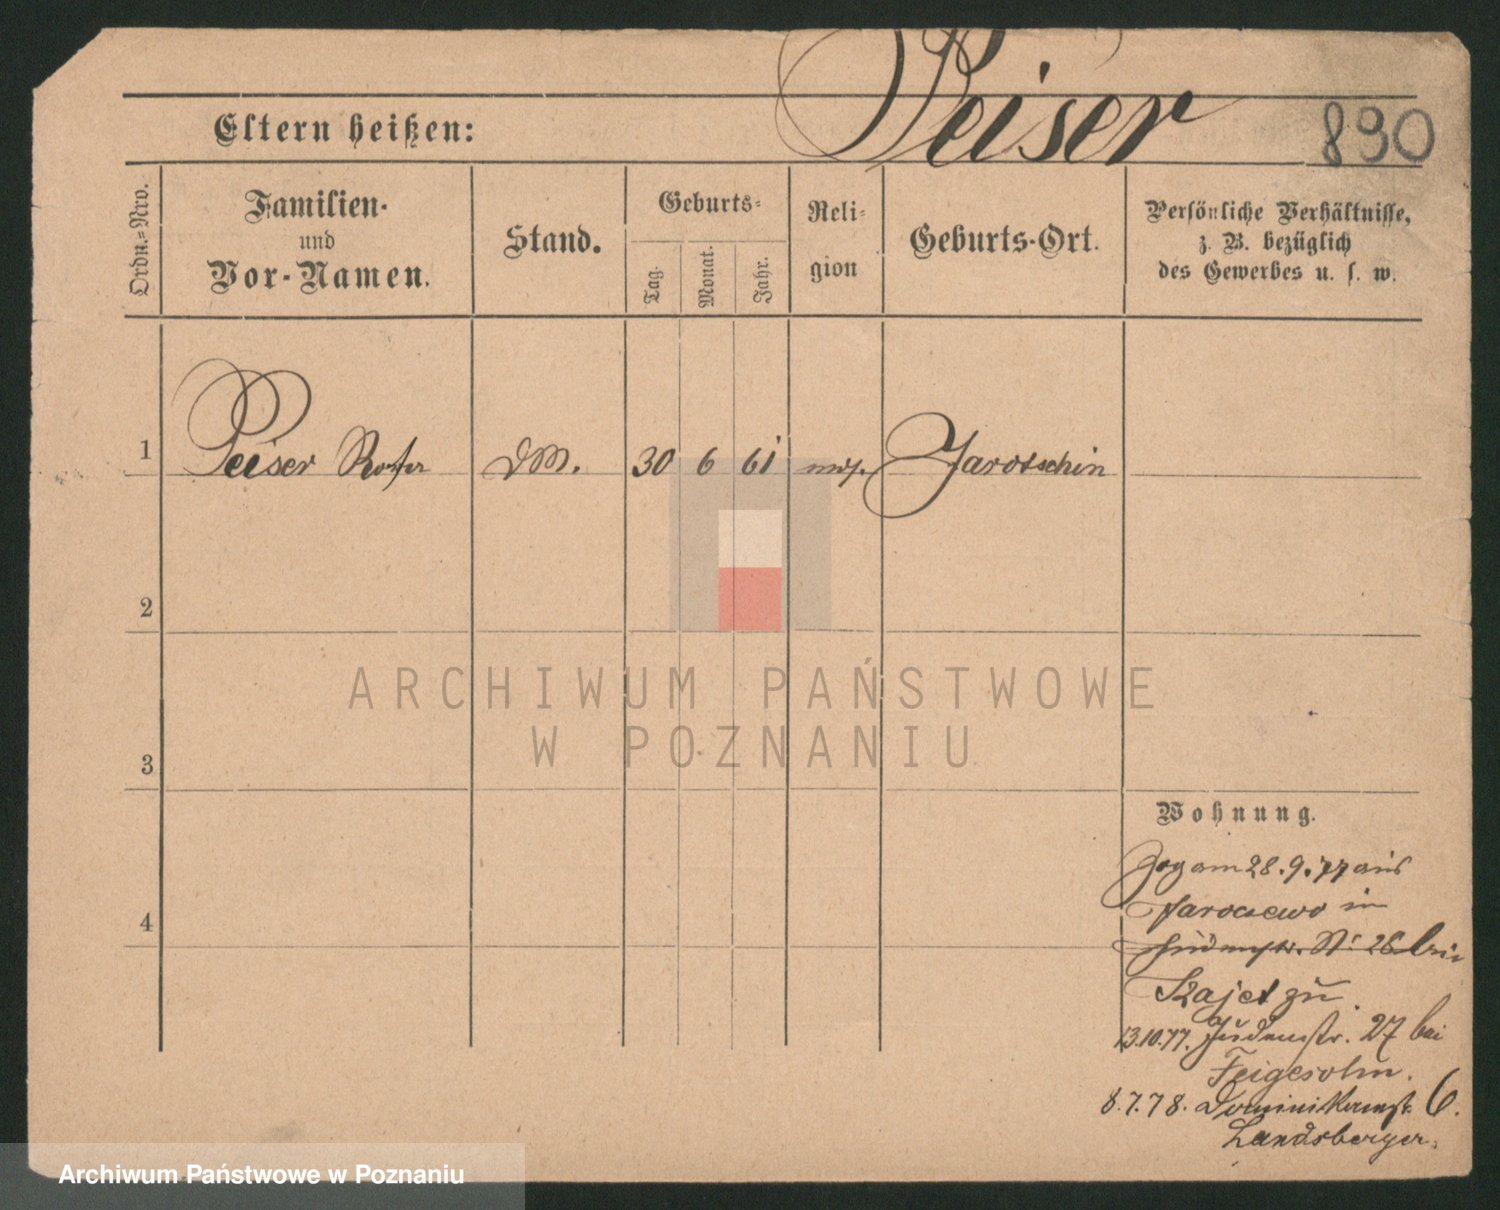 Peiser
890
Eltern heißen:
Ordn.-Nro.
Familien-
und
Vor-Namen.
Stand.
Geburts-
Tag.
Monat.
Jahr.
Reli-
gion
Geburts-Ort.
Persönliche Verhältnisse,
z. B. bezüglich
des Gewerbes u. s. w.
1 Peiser DM. 30 6 61 mos. Jarotschin
2
ARCHIWUM PAŃSTWOWE
W POZNANIU
3
Wohnung.
Zog am 28.9.77 aus
in
4
Judenstr. N: 26 bei
Kajet zu
13.10.77. Judenstr. 27 bei
8.7.78. Dominikanerstr. 6.
Landsberger.
Archiwum Państwowe w Poznaniu